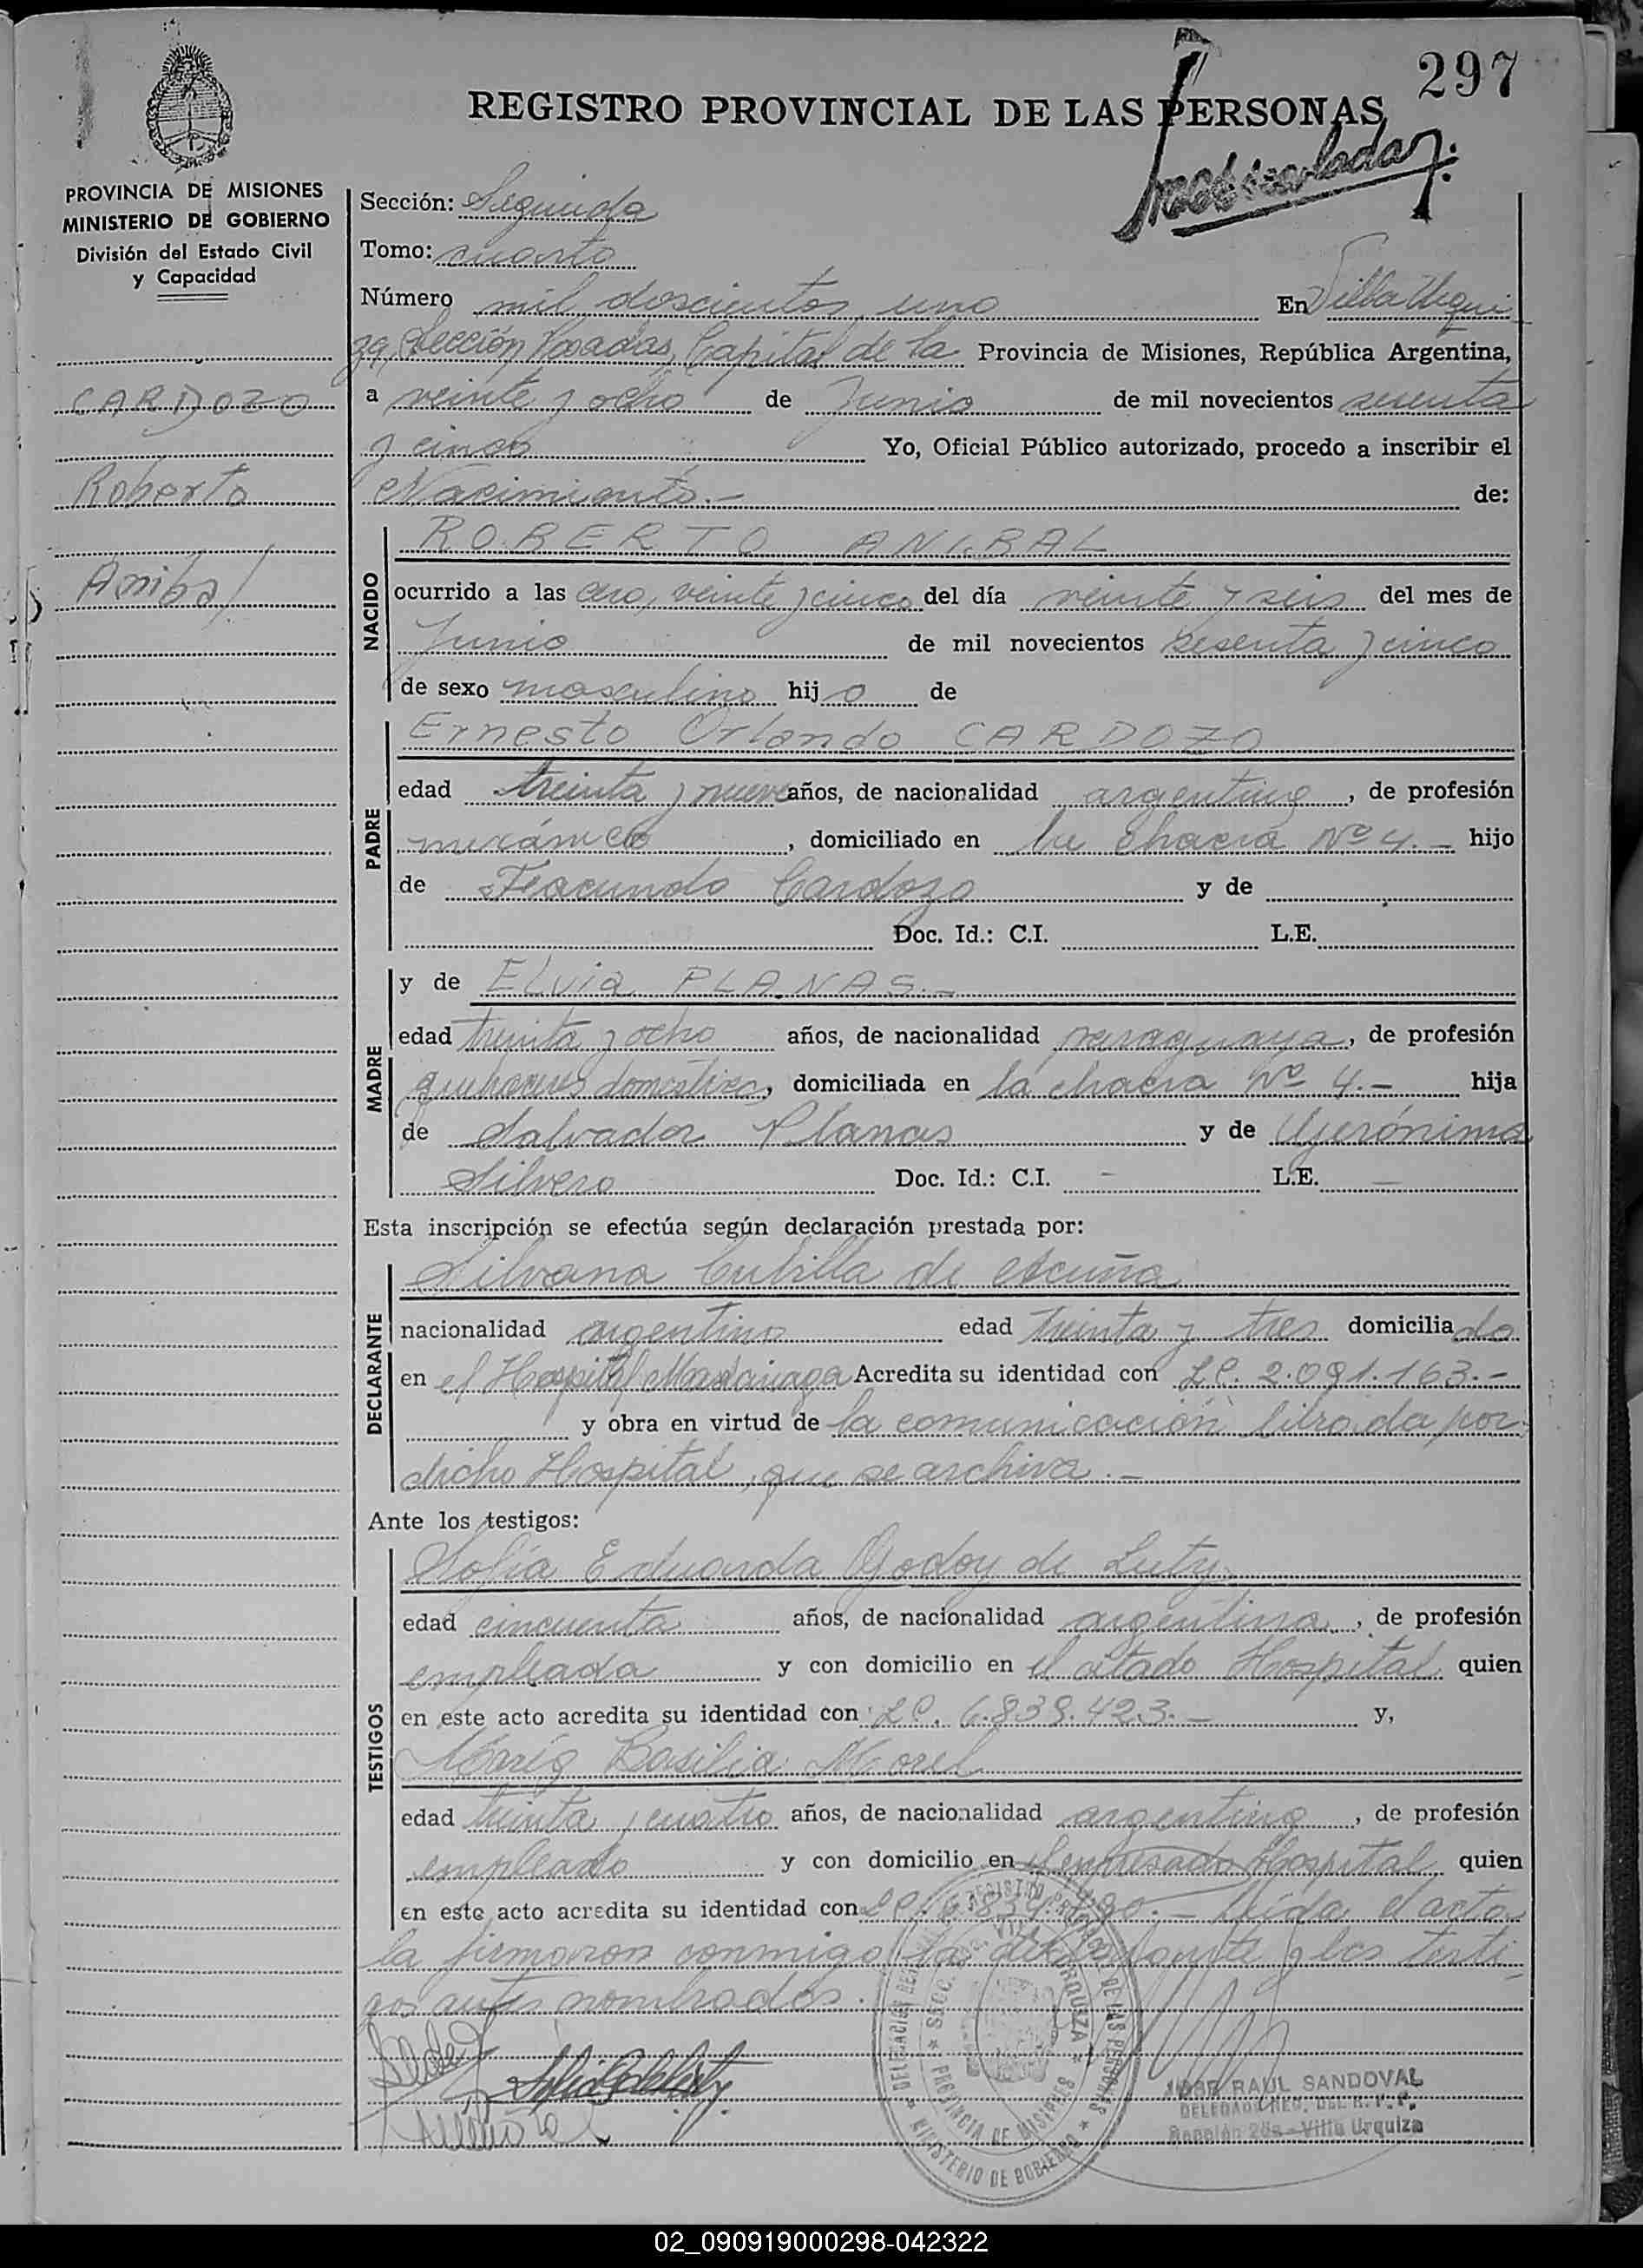 297
REGISTRO PROVINCIAL DE LAS PERSONAS
PROVINCIA DE MISIONES
MINISTERIO DE GOBIERNO
División del Estado Civil
y Capacidad
CARDOZO
Roberto
Anibal
Sección: Segunda
Tomo: cuarto
Número mil doscientos uno En Villa Urqui
za, Sección Posadas, Capital de la Provincia de Misiones, República Argentina,
a veinte y ocho de Junio de mil novecientos sesenta
y cinco Yo, Oficial Público autorizado, procedo a inscribir el
Nacimiento.- de:
NACIDO
ROBERTO ANIBAL
ocurrido a las cero, veinte y cinco del día veinte y seis del mes de
Junio de mil novecientos sesenta y cinco
de sexo masculino hijo de
PADRE
Ernesto Orlando CARDOZO
edad treinta y nueve años, de nacionalidad argentino, de profesión
mecánico, domiciliado en la chacra Nº 4.- hijo
de Facundo Cardozo y de
Doc. Id.: C.I. L.E.
MADRE
y de Elvia PLANAS.-
edad treinta y ocho años, de nacionalidad paraguaya, de profesión
quehaceres domésticos, domiciliada en la chacra Nº 4.- hija
de Salvador Planas y de Gerónima
Silvero Doc. Id.: C.I. - L.E. -
Esta inscripción se efectúa según declaración prestada por:
DECLARANTE
Silvana Cubilla de Acuña
nacionalidad argentina edad treinta y tres domiciliado
en el Hospital Madariaga Acredita su identidad con LC. 2.091.163.-
y obra en virtud de la comunicación librada por
dicho Hospital, que se archiva.-
Ante los testigos:
TESTIGOS
Sofía Eduarda Godoy de Luty
edad cincuenta años, de nacionalidad argentina, de profesión
empleada y con domicilio en el citado Hospital quien
en este acto acredita su identidad con LC. 6.838.423.- y,
María Basilia Morel
edad treinta y cuatro años, de nacionalidad argentina, de profesión
empleada y con domicilio en el expresado Hospital quien
en este acto acredita su identidad con LC. Leída el acta
la firmaron conmigo la declarante y los testi
gos antes nombrados.
JOSE RAUL SANDOVAL
DELEGADO REG. DEL R. P. P.
Sección 2da - Villa Urquiza
MINISTERIO DE GOBIERNO
PROVINCIA DE MISIONES
02_090919000298-042322